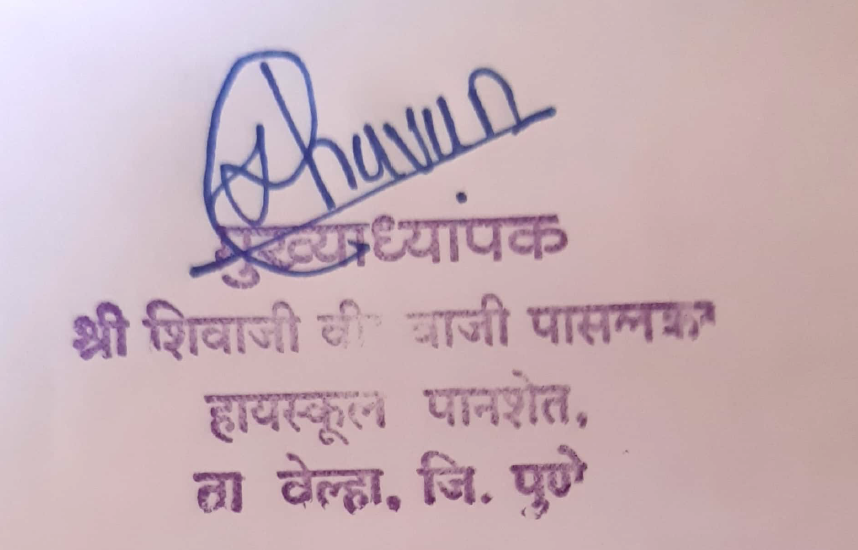 मुख्याध्यापक
श्री शिवाजी वीर बाजी पासलकर
हायस्कूल पानशेत,
ता वेल्हा. जि. पुणे